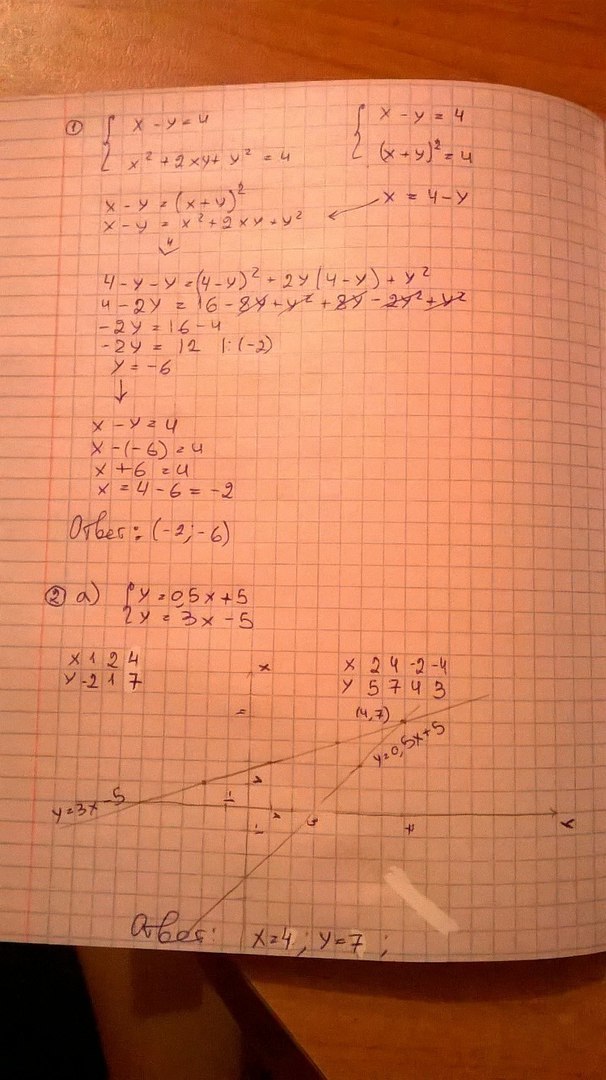 ① { x - y = 4
x² + 2xy + y² = 4
{ x - y = 4
(x+y)² = 4
x - y = (x+y)²
x = 4 - y
x - y = x² + 2xy + y²
4 - y - y = (4-y)² + 2y(4-y) + y²
4 - 2y = 16 - 8y + y² + 8y - 2y² + y²
-2y = 16 - 4
-2y = 12 |:(-2)
y = -6
x - y = 4
x - (-6) = 4
x + 6 = 4
x = 4 - 6 = -2
Ответ: (-2; -6)
② а) { y = 0,5x + 5
y = 3x - 5
x 1 2 4
y -2 1 7
x
x 2 4 -2 -4
y 5 7 4 3
(4,7)
y=0,5x+5
y=3x-5
x
Ответ: x=4; y=7;